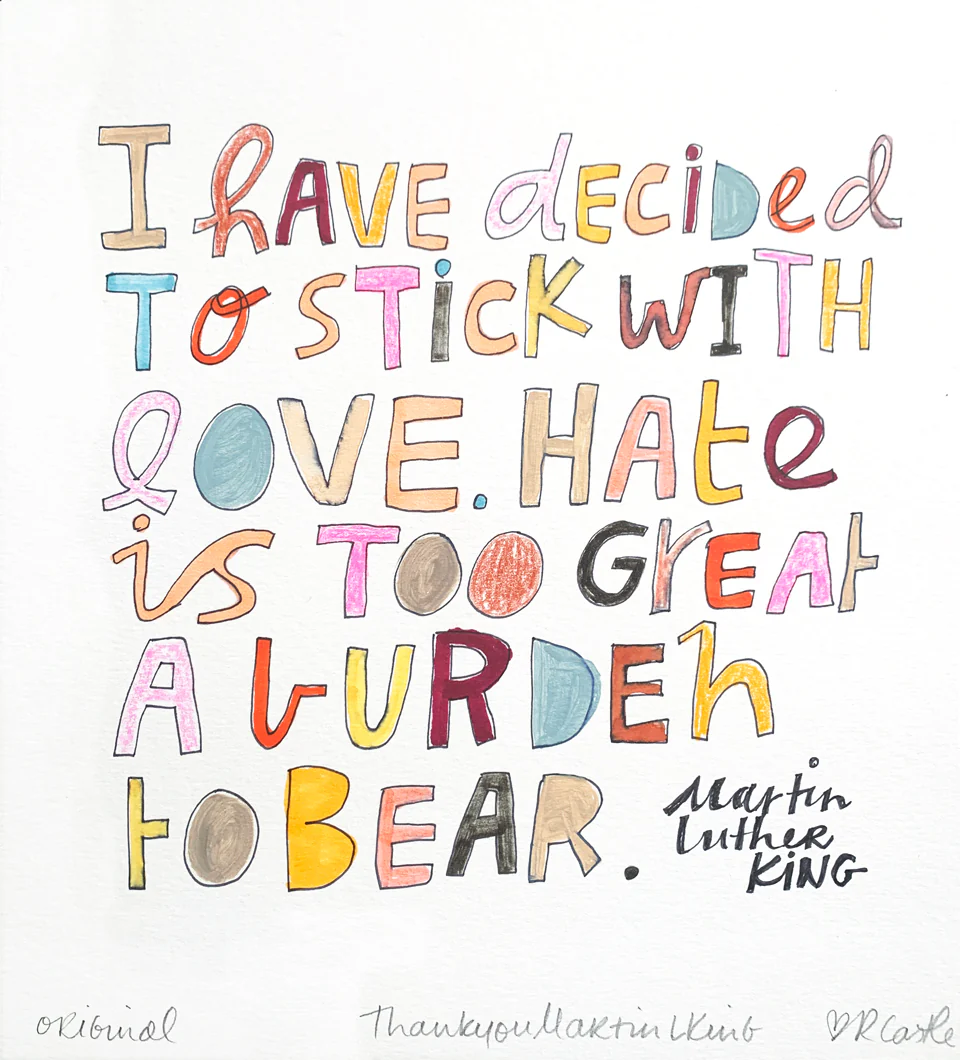 I hAVE decided
TO STiCK WITH
lOVE. HAte
is TOO GrEAt
A bURDEn
to BEAR.
Martin
Luther
KiNG
ORiGinal ThankyouMartinLKinG ♡RCastle